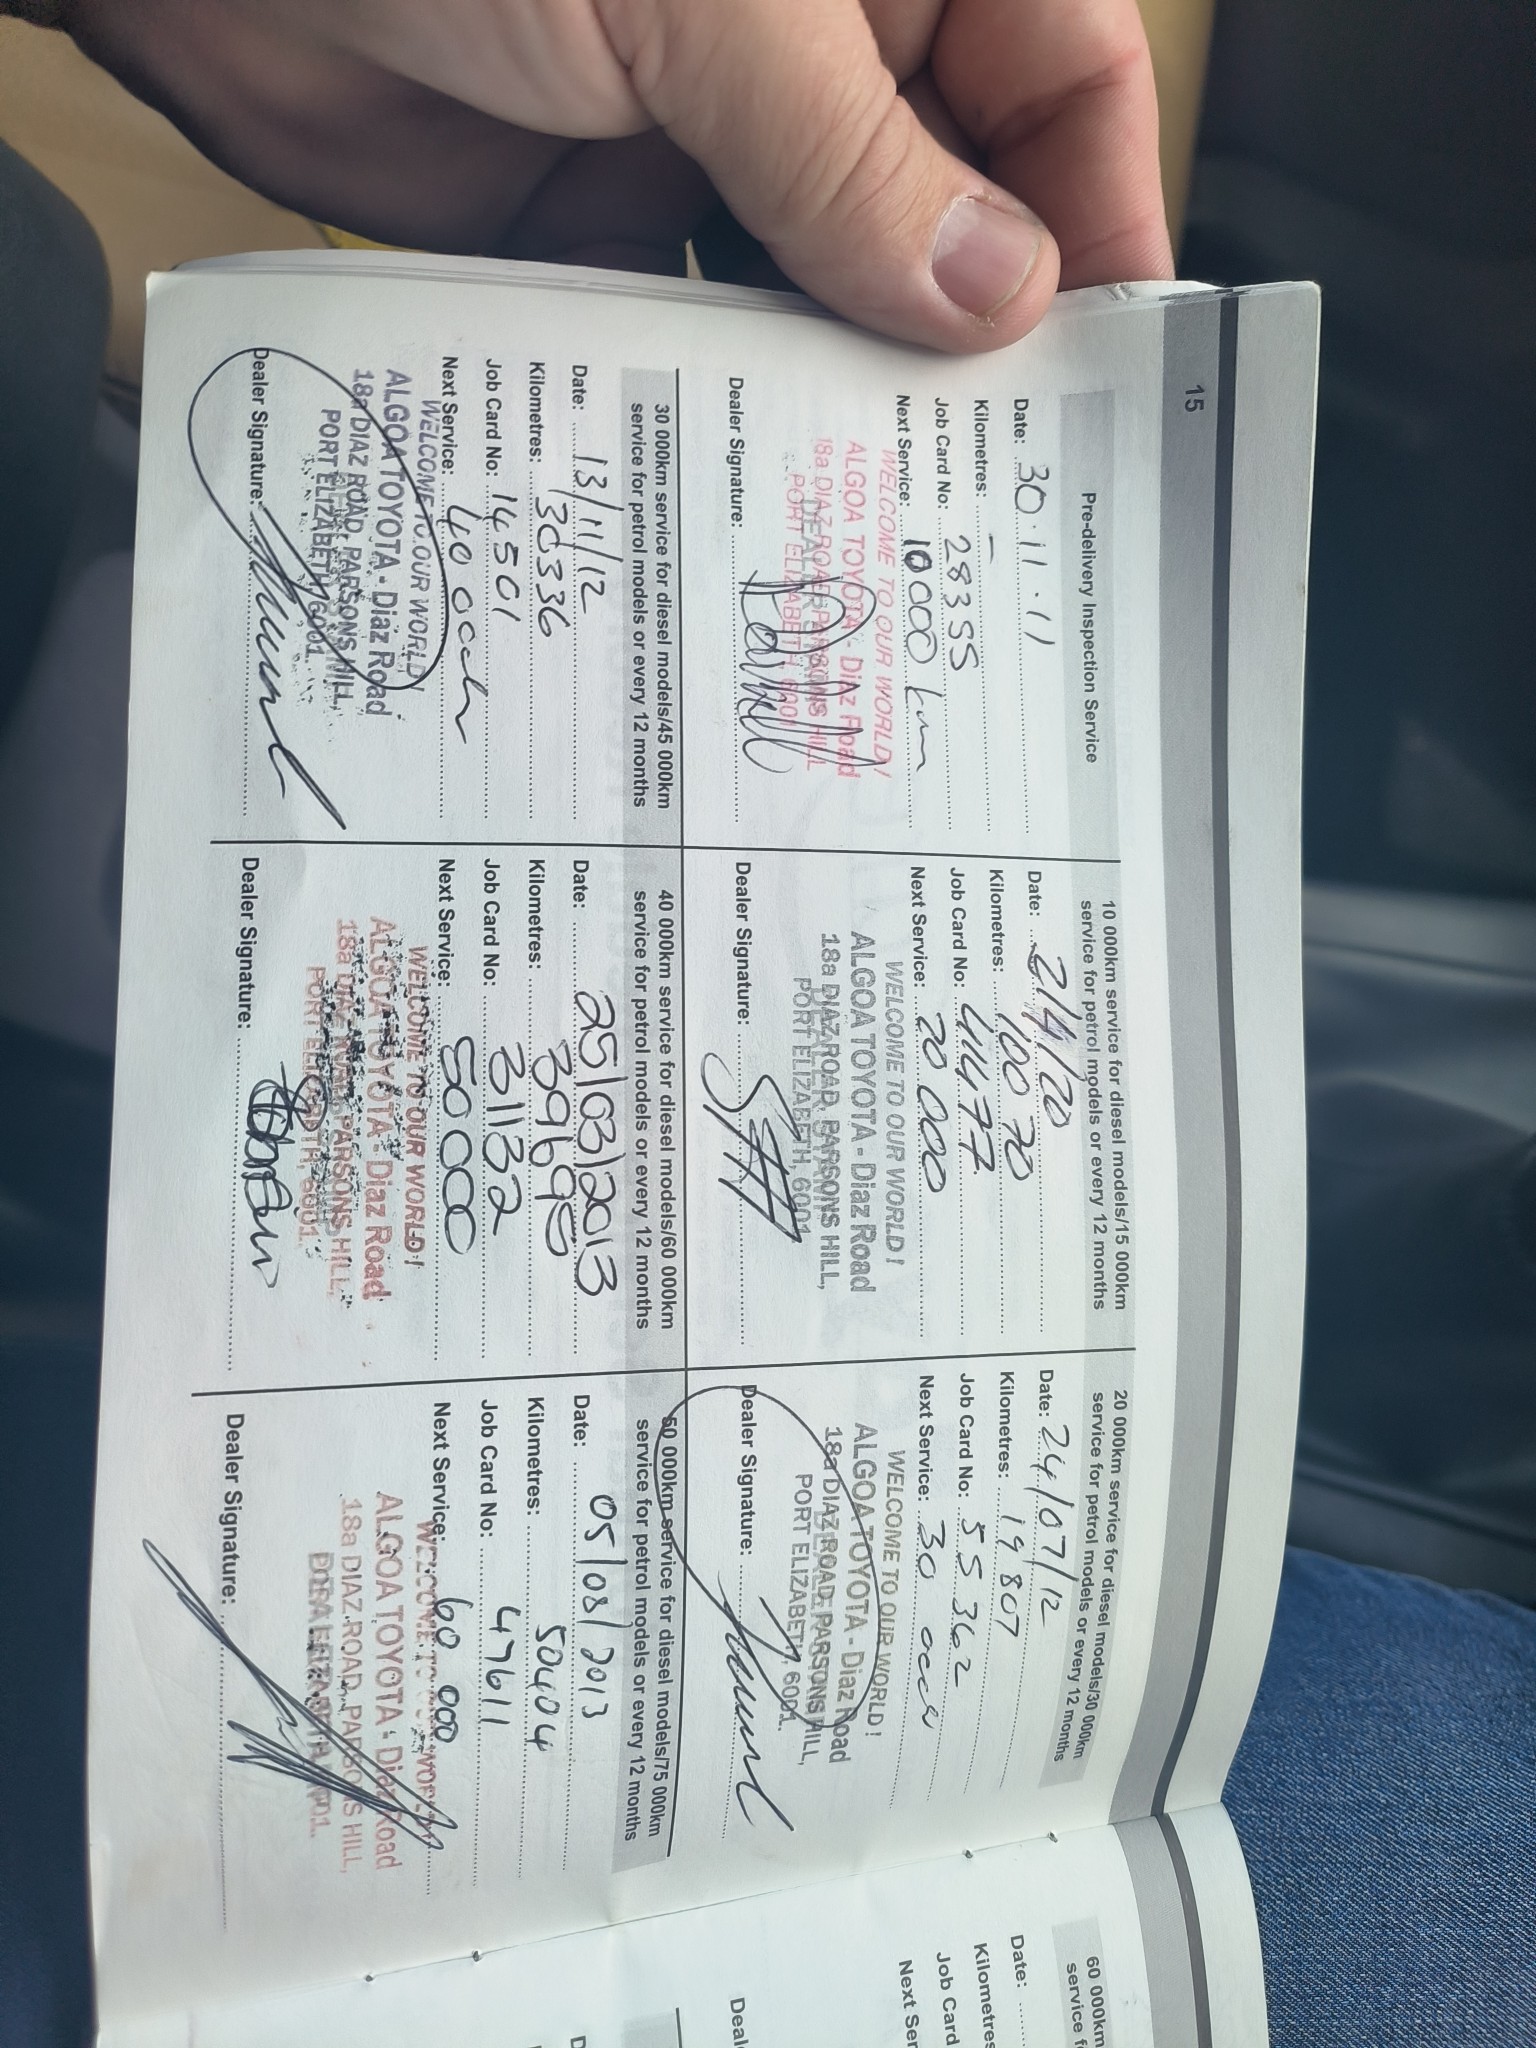 15
Pre-delivery Inspection Service
Date: 30.11.11
Kilometres: –
Job Card No: 28355
Next Service: 10000 km
WELCOME TO OUR WORLD!
ALGOA TOYOTA - Diaz Road
18a DIAZ ROAD, PARSONS HILL
PORT ELIZABETH, 6001
Dealer Signature:
10 000km service for diesel models/15 000km
service for petrol models or every 12 months
Date:
Kilometres: 10070
Job Card No: 44477
Next Service: 20 000
WELCOME TO OUR WORLD!
ALGOA TOYOTA - Diaz Road
18a DIAZ ROAD, PARSONS HILL,
PORT ELIZABETH, 6001
Dealer Signature:
20 000km service for diesel models/30 000km
service for petrol models or every 12 months
Date: 24/07/12
Kilometres: 19807
Job Card No: 55362
Next Service: 30 000
WELCOME TO OUR WORLD!
ALGOA TOYOTA - Diaz Road
18a DIAZ ROAD, PARSONS HILL,
PORT ELIZABETH, 6001.
Dealer Signature:
30 000km service for diesel models/45 000km
service for petrol models or every 12 months
Date: 13/11/12
Kilometres: 30336
Job Card No: 14501
Next Service: 40 000
WELCOME TO OUR WORLD!
ALGOA TOYOTA - Diaz Road
18a DIAZ ROAD, PARSONS HILL,
PORT ELIZABETH, 6001.
Dealer Signature:
40 000km service for diesel models/60 000km
service for petrol models or every 12 months
Date: 25/03/2013
Kilometres: 39695
Job Card No: 31132
Next Service: 50000
WELCOME TO OUR WORLD!
ALGOA TOYOTA - Diaz Road
18a DIAZ ROAD, PARSONS HILL,
PORT ELIZABETH, 6001.
Dealer Signature:
50 000km service for diesel models/75 000km
service for petrol models or every 12 months
Date: 05/08/2013
Kilometres: 50404
Job Card No: 47611
Next Service: 60 000
WELCOME TO OUR WORLD!
ALGOA TOYOTA - Diaz Road
18a DIAZ ROAD, PARSONS HILL,
PORT ELIZABETH, 6001.
Dealer Signature:
60 000km
service f
Date:
Kilometres
Job Card
Next Ser
Deal
D